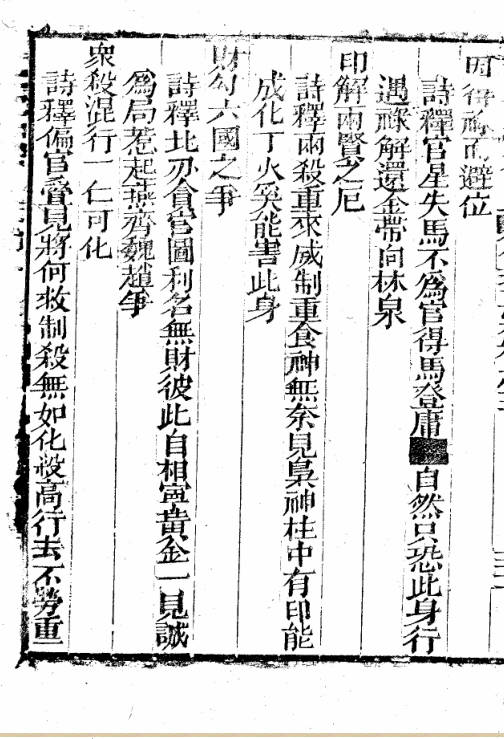 因得祿而避位
詩釋官星失馬不爲官得馬登庸自然只恐此身行
遇祿解還金帶向林泉
印解兩賢之厄
詩釋兩殺重來威制重食神無奈見梟神柱中有印能
成化丁火奚能害此身
財勾六國之爭
詩釋比刃貪官圖利名無財彼此自相寧黃金一見誠
爲局惹起燕齊魏趙爭
衆殺混行一仁可化
詩釋偏官疊見將何救制殺無如化殺高行去不勞重